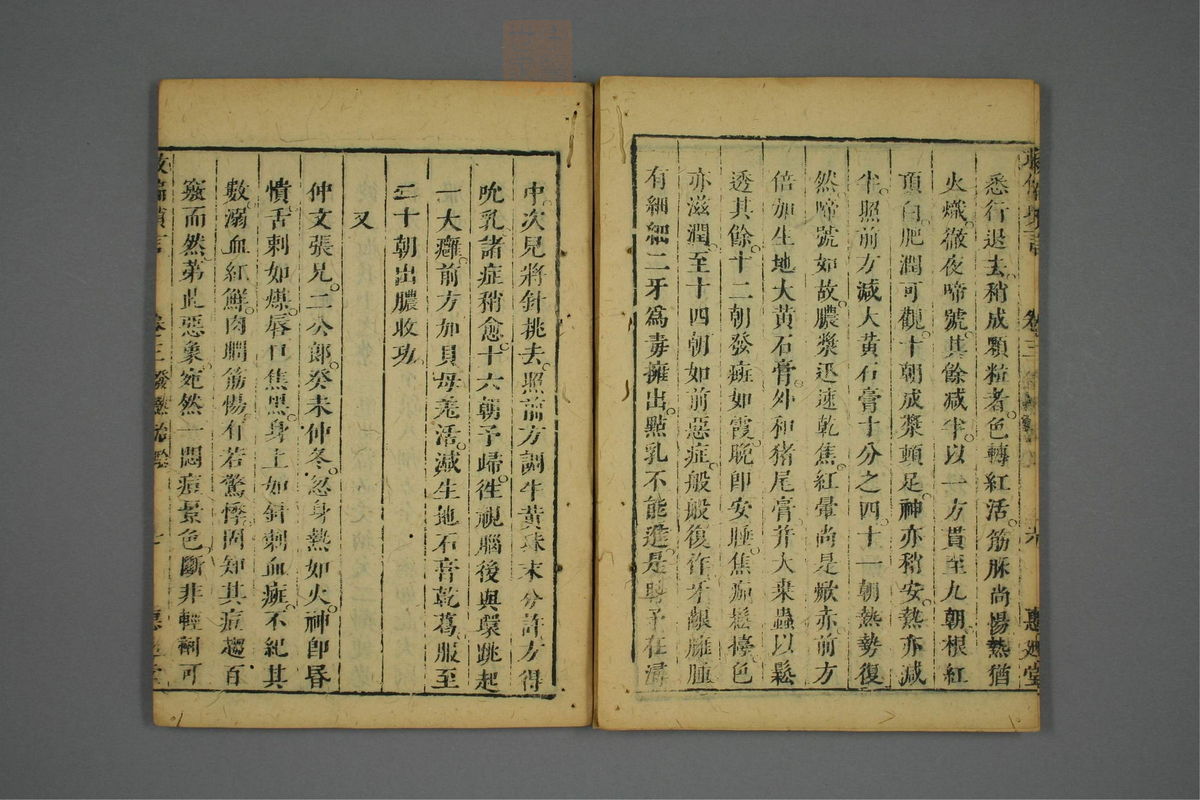 悉行退去。稍成顆粒者。色轉紅活。筋脉尚惕。熱猶
火熾。徹夜啼號。其餘减半。以一方貫至九朝。根紅
頂白。肥潤可觀。十朝成漿頭足。神亦稍安。熱亦减
半。照前方减大黃石膏十分之四。十一朝熱勢復
然。啼號如故。膿漿迅速乾焦。紅暈尚是㷉赤。前方
倍加生地大黃石膏。外和猪尾膏。并大桑蟲以鬆
透其餘。十二朝發斑如霞。晚即安睡。焦痂鬆擡。色
亦滋潤。至十四朝如前惡症。般般復作。牙齦臃腫
有細細二牙爲毒擁出。㸃乳不能進。是時予在潯
中。次兒將針挑去。照前方調牛黃珠末分許。方得
吮乳。諸症稍愈。十六朝予歸。徃視腦後與環跳起
一大癰。前方加貝母羌活。减生地石膏乾葛。服至
二十朝出膿收功。
又
仲文張兄。二公郎。癸未仲冬。忽身熱如火。神即昏
憒。舌刺如煤。唇口焦黑。身上如針刺血斑。不紀其
數。溺血紅鮮。肉瞤筋惕。有若驚悸。固知其痘趨百
竅而然。第此惡象。宛然一悶痘景色。斷非輕劑可